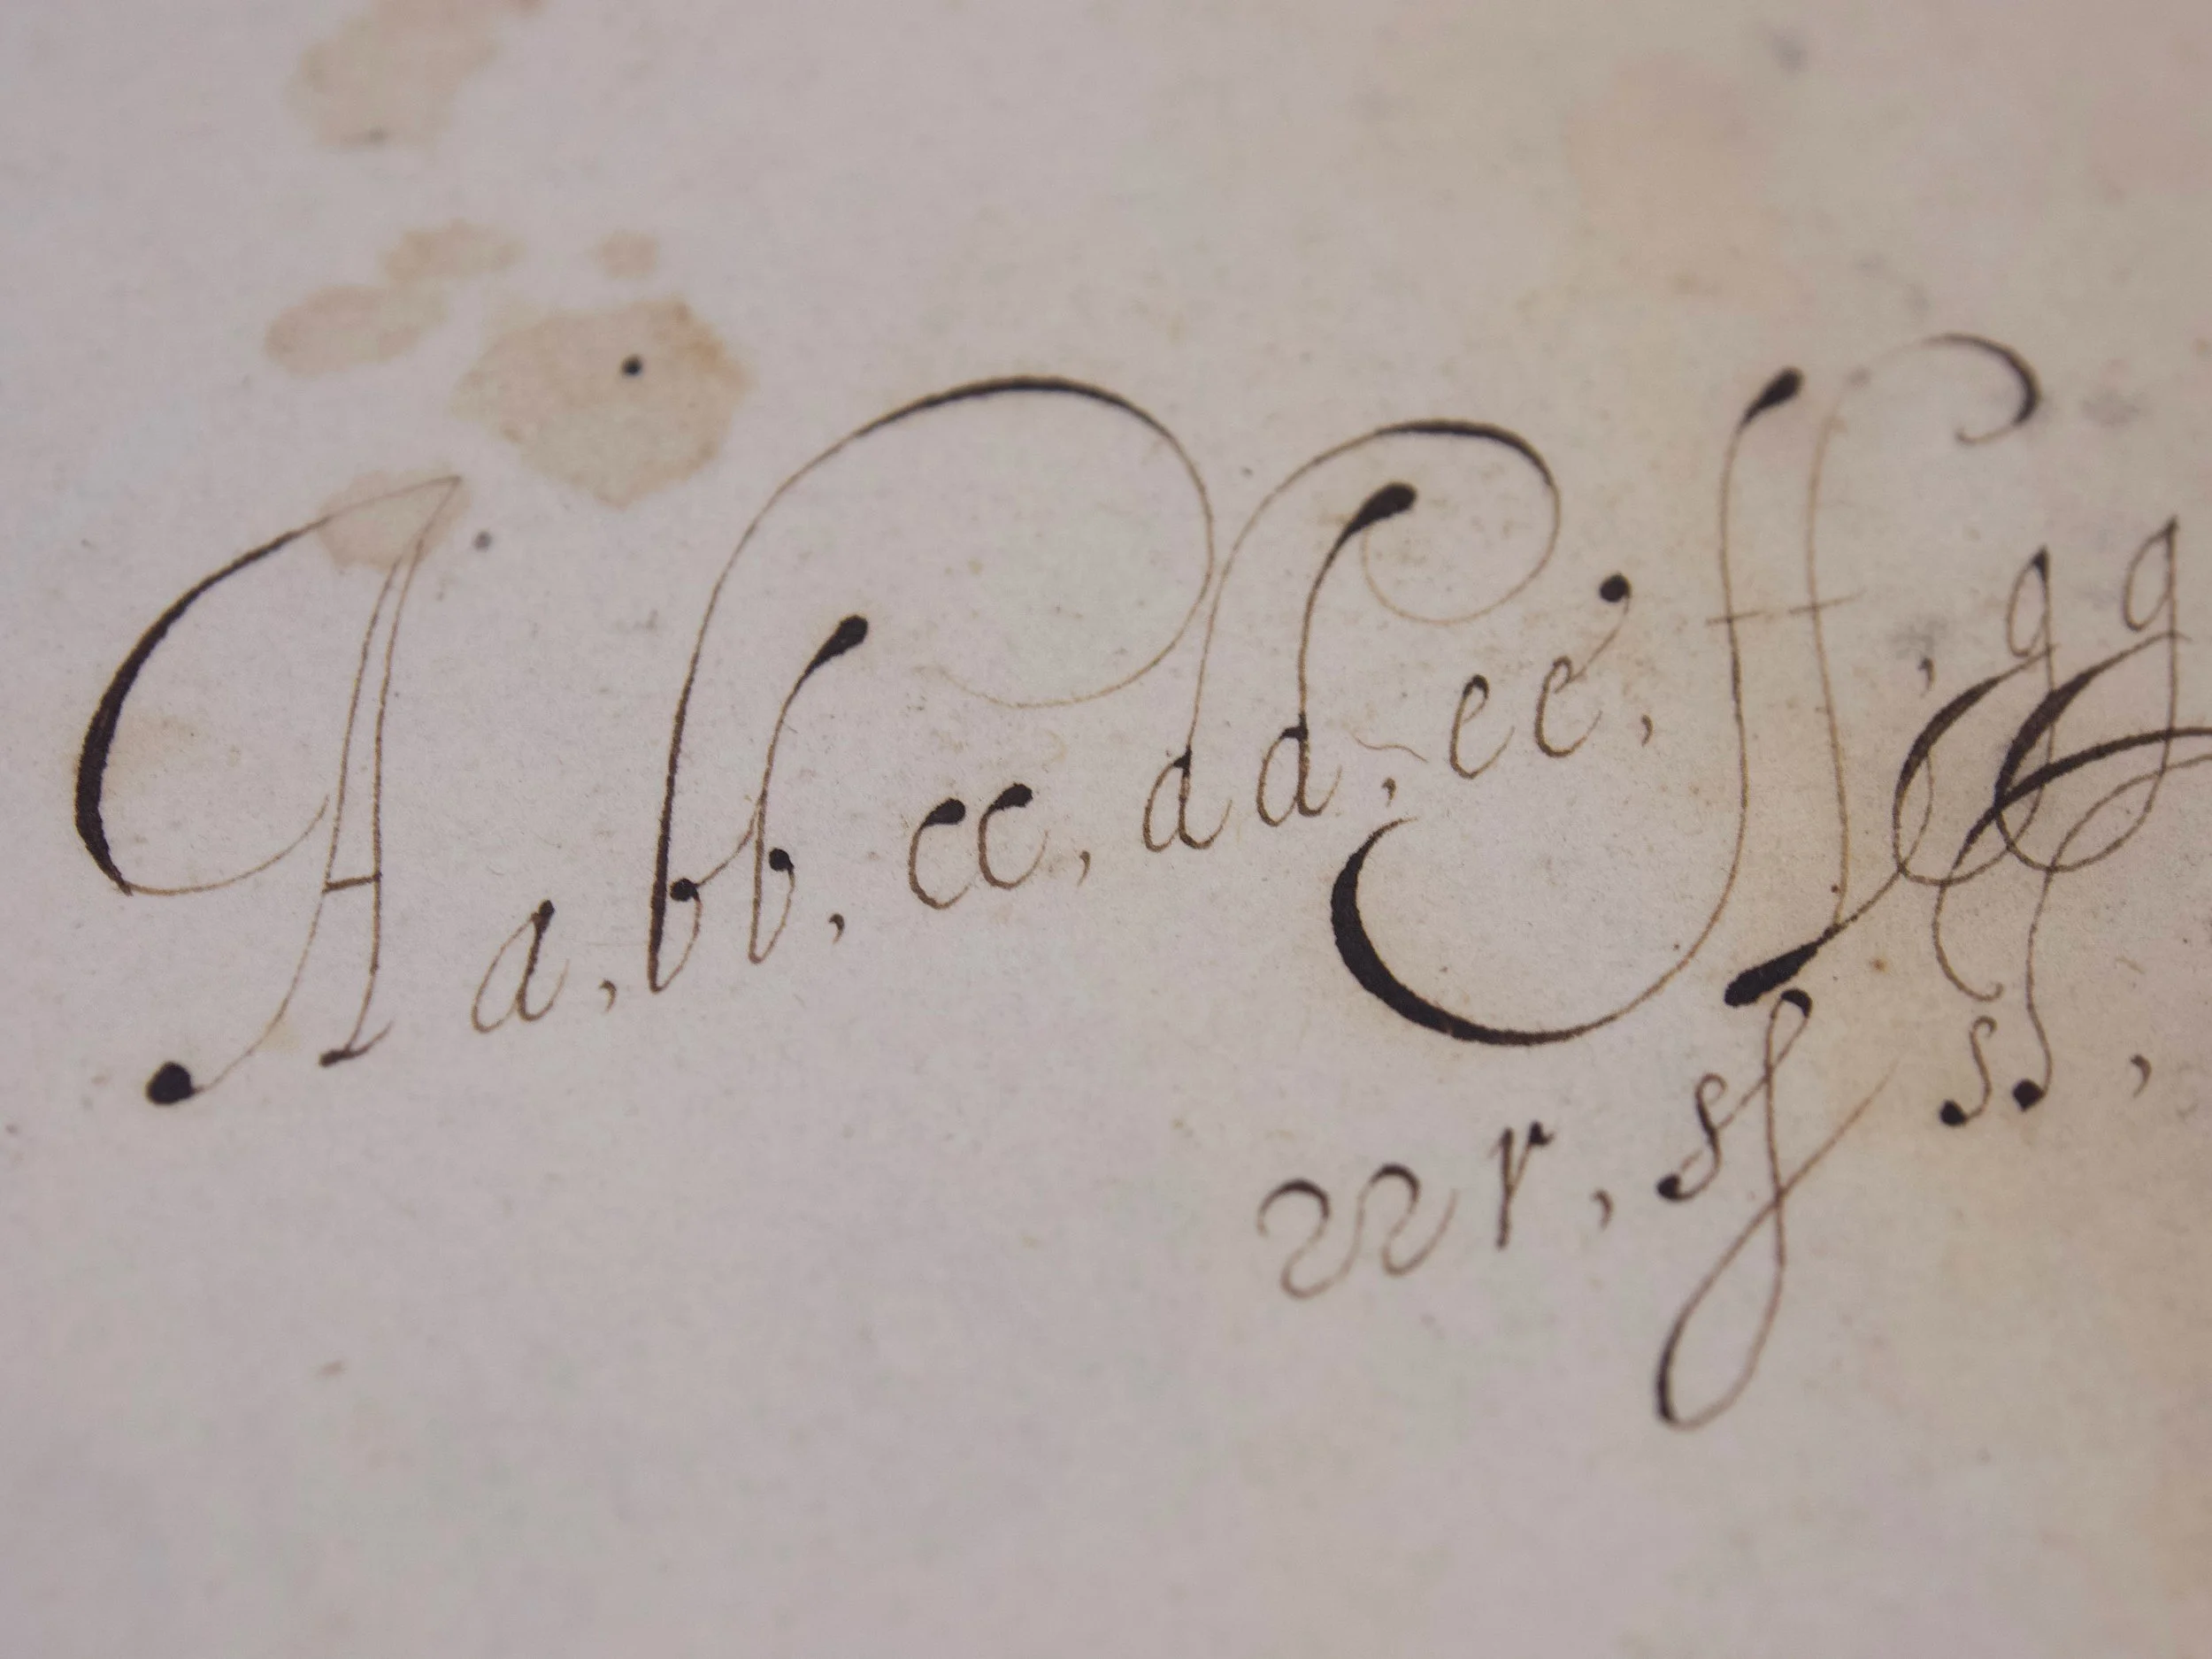 A a, bb, cc, dd, ee, ff, gg
rr r, sſ ss,